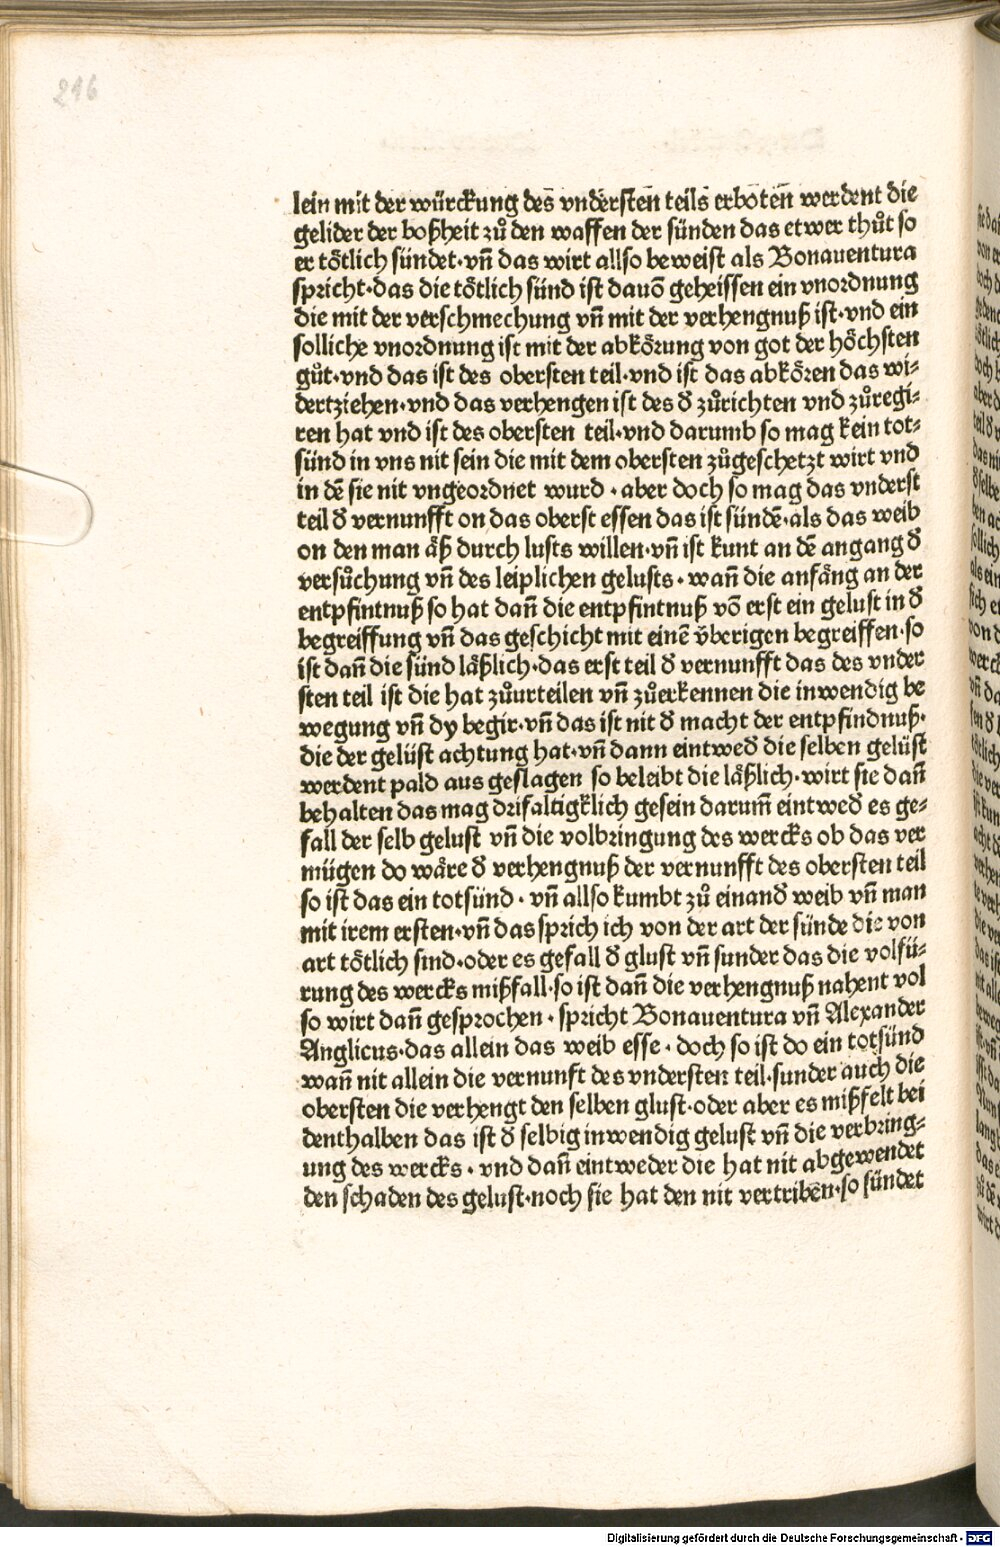 216
lein mit der würckung des vnderſten teils erboten werdent die
gelider der boßheit zů den waffen der ſünden das etwer thůt ſo
er tötlich ſündet·vn̄ das wirt allſo beweiſt als Bonauentura
ſpricht·das die tötlich ſünd iſt dauō geheiſſen ein vnordnung
die mit der verſchmechung vn̄ mit der verhengnuß iſt·vnd ein
ſolliche vnordnung iſt mit der abkörung von got der höchſten
gůt·vnd das iſt des oberſten teil·vnd iſt das abkören das wi⸗
dertziehen·vnd das verhengen iſt des d̕ zůrichten vnd zůregi⸗
ren hat vnd iſt des oberſten teil·vnd darumb ſo mag kein tot⸗
ſünd in vns nit ſein die mit dem oberſten zůgeſchetzt wirt vnd
in dē ſie nit vngeordnet wurd · aber doch ſo mag das vnderſt
teil d̕ vernunfft on das oberſt eſſen das iſt ſündē·als das weib
on den man äß durch luſts willen·vn̄ iſt kunt an dē angang d̕
verſůchung vn̄ des leiplichen geluſts · wan̄ die anfäng an der
entpfintnuß ſo hat dan̄ die entpfintnuß vō erſt ein geluſt in d̕
begreiffung vn̄ das geſchicht mit einē v̈berigen begreiffen·ſo
iſt dan̄ die ſünd läßlich·das erſt teil d̕ vernunfft das des vnder
ſten teil iſt die hat zůurteilen vn̄ zůerkennen die inwendig be
wegung vn̄ dy begir·vn̄ das iſt nit d̕ macht der entpfindnuß·
die der gelüſt achtung hat·vn̄ dann eintwed̕ die ſelben gelüſt
werdent pald aus geſlagen ſo beleibt die läßlich·wirt ſie dan̄
behalten das mag drifaltigklich geſein darum̄ eintwed̕ es ge⸗
fall der ſelb geluſt vn̄ die volbringung des wercks ob das ver
mügen do wäre d̕ verhengnuß der vernunfft des oberſten teil
ſo iſt das ein totſünd · vn̄ allſo kumbt zů einand̕ weib vn̄ man
mit irem erſten·vn̄ das ſprich ich von der art der ſünde die von
art tötlich ſind·oder es gefall d̕ gluſt vn̄ ſunder das die volfü⸗
rung des wercks mißfall·ſo iſt dan̄ die verhengnuß nahent vol
ſo wirt dan̄ geſprochen · ſpricht Bonauentura vn̄ Alexander
Anglicus·das allein das weib eſſe · doch ſo iſt do ein totſünd
wan̄ nit allein die vernunft des vnderſten teil·ſunder auch die
oberſten die verhengt den ſelben gluſt·oder aber es mißfelt bei
denthalben das iſt d̕ ſelbig inwendig geluſt vn̄ die verbring⸗
ung des wercks · vnd dan̄ eintweder die hat nit abgewendet
den ſchaden des geluſt·noch ſie hat den nit vertriben·ſo ſündet
Digitalisierung gefördert durch die Deutsche Forschungsgemeinschaft - DFG